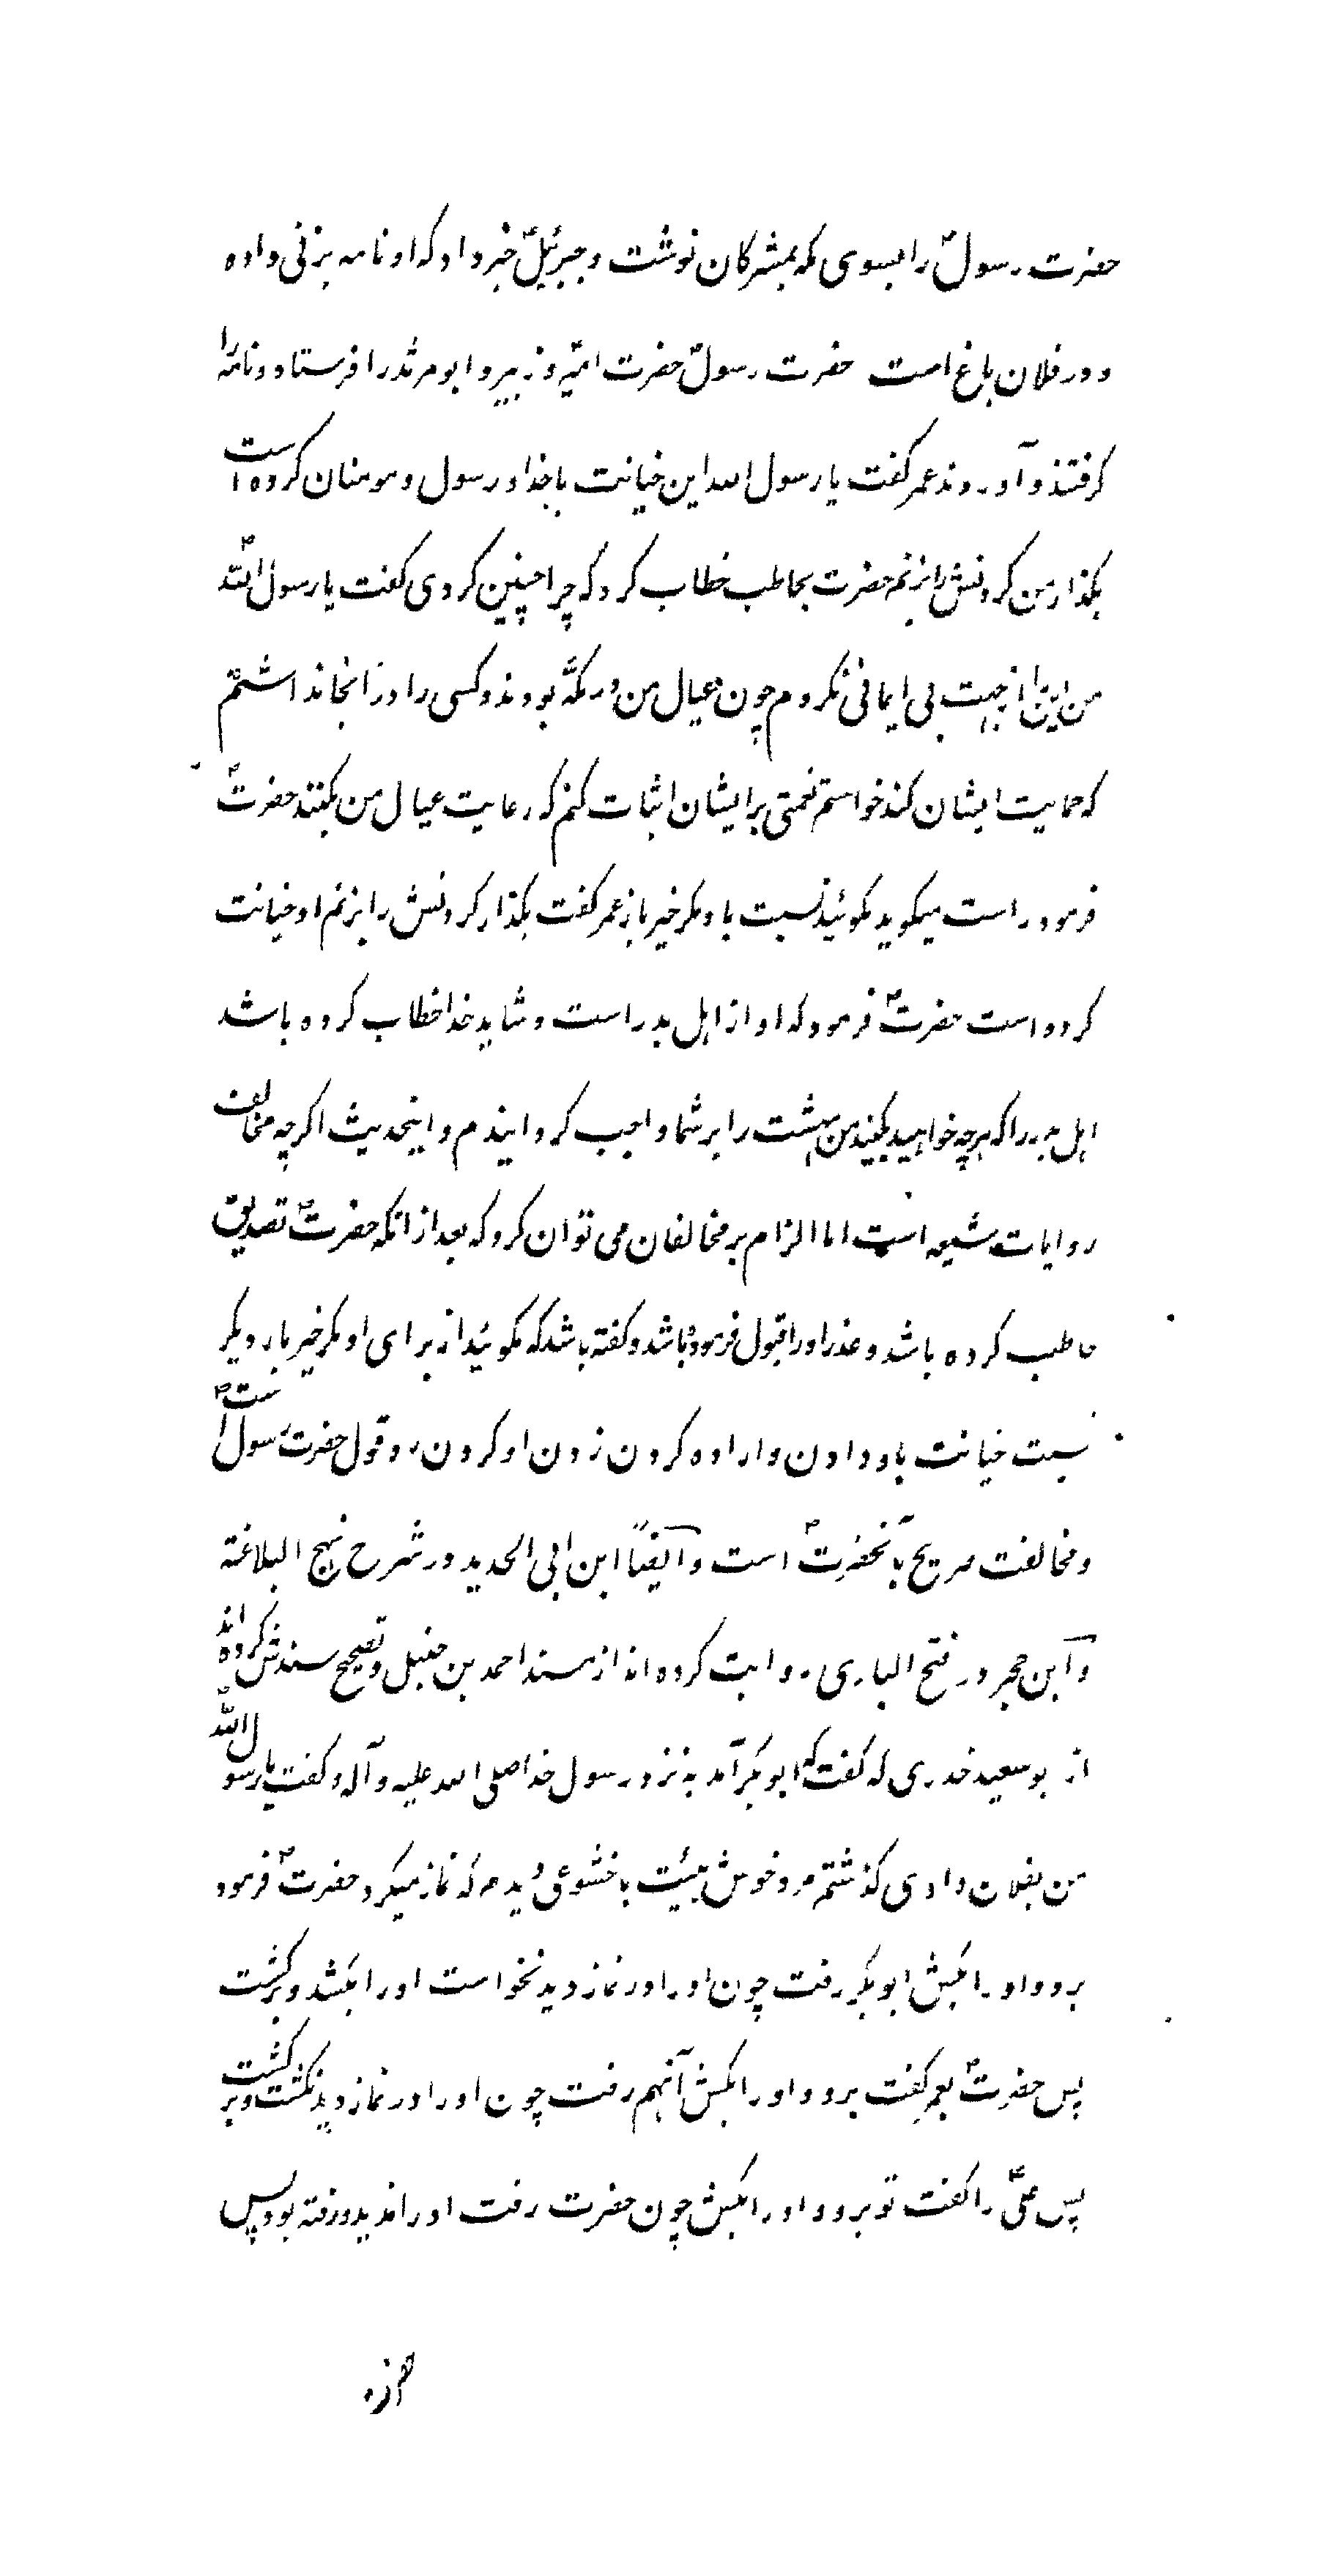 حضرت رسولؐ را بسوی مکه بمشرکان نوشت و جبرئیلؑ خبر داد که او نامه بزنی داده
و در فلان باغ است حضرت رسولؐ حضرت امیرؑ و زبیر و ابو مرثد را فرستاد و نامه را
کرفتند و آوردند عمر کفت یا رسول الله این خیانت با خدا و رسول و مومنان کرده است
بکذار من کردنش را بزنم حضرت بحاطب خطاب کرد که چرا چنین کردی کفت یا رسول اللهؐ
من این را از جهت بی ایمانی نکردم چون عیال من در مکّه بودند و کسی را در انجا نداشتم
که حمایت ایشان کند خواستم نعمتی بر ایشان اثبات کنم که رعایت عیال من بکنند حضرتؐ
فرمود راست میکوید مکوئید نسبت باو مکر خیر باز عمر کفت بکذار کردنش را بزنم او خیانت
کرده است حضرتؐ فرمود که او از اهل بدر است و شاید خدا خطاب کرده باشد
اهل بدر را که هر چه خواهید بکنید من بهشت را بر شما واجب کردانیدم و اینحدیث اکرچه مخالف
روایات شیعه است اما الزام بر مخالفان می توان کرد که بعد از آنکه حضرتؐ تصدیق
حاطب کرده باشد و عذر او را قبول فرموده باشد و کفته باشد که مکوئید از برای او مکر خیر بار دیکر
نسبت خیانت باو دادن و اراده کردن زدن او کردن رد قول حضرت رسولؐ است
و مخالفت صریح بآنحضرتؐ است وآیضًا ابن ابی الحدید در شرح نهج البلاغة
وآبن حجر در فتح الباری روایت کرده اند از مسند احمد بن حنبل و تصحیح سندش کرده اند
از بو سعید خدری که کفت که ابو بکر آمد به نزد رسول خدا صلی الله علیه و آله و کفت یا رسول اللهؐ
من بفلان وادی کذشتم مرد خوش هیئت با خشوعی دیدم که نماز میکرد حضرتؐ فرمود
برو و او را بکش ابو بکر رفت چون او را در نماز دید نخواست او را بکشد و برکشت
پس حضرتؐ بعمر کفت برو و او را بکش آنهم رفت چون او را در نماز دید نکشت و برکشت
پس علیؑ را کفت تو برو و او را بکش چون حضرت رفت او را ندید و رفته بود پس